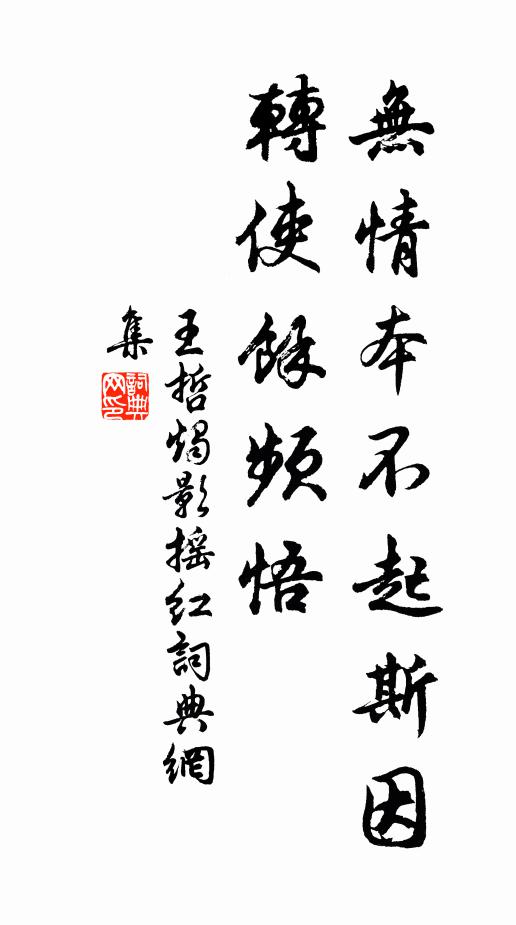 無情本不起斯因
轉使餘頻悟
王哲燭影搖紅詞典網
集
詞典
网印